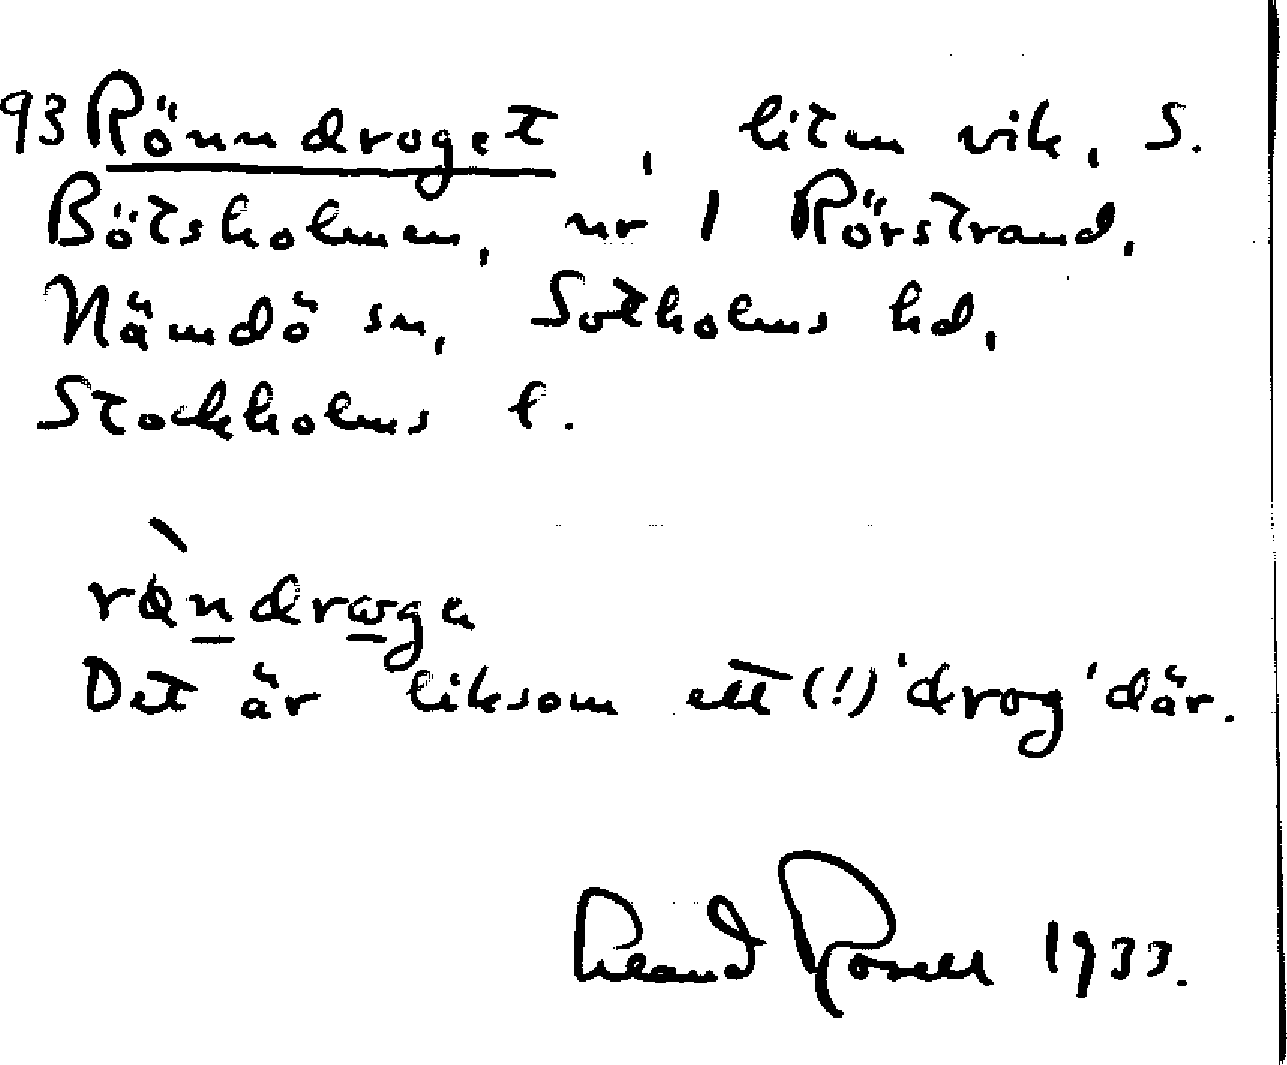 93 Rönndroget, liten vik, S.
Bötsholmen, nr 1 Rörstrand,
Nämdö sn, Sotholms hd,
Stockholms l.
Det är liksom ett (!) 'drog' där.
1933.